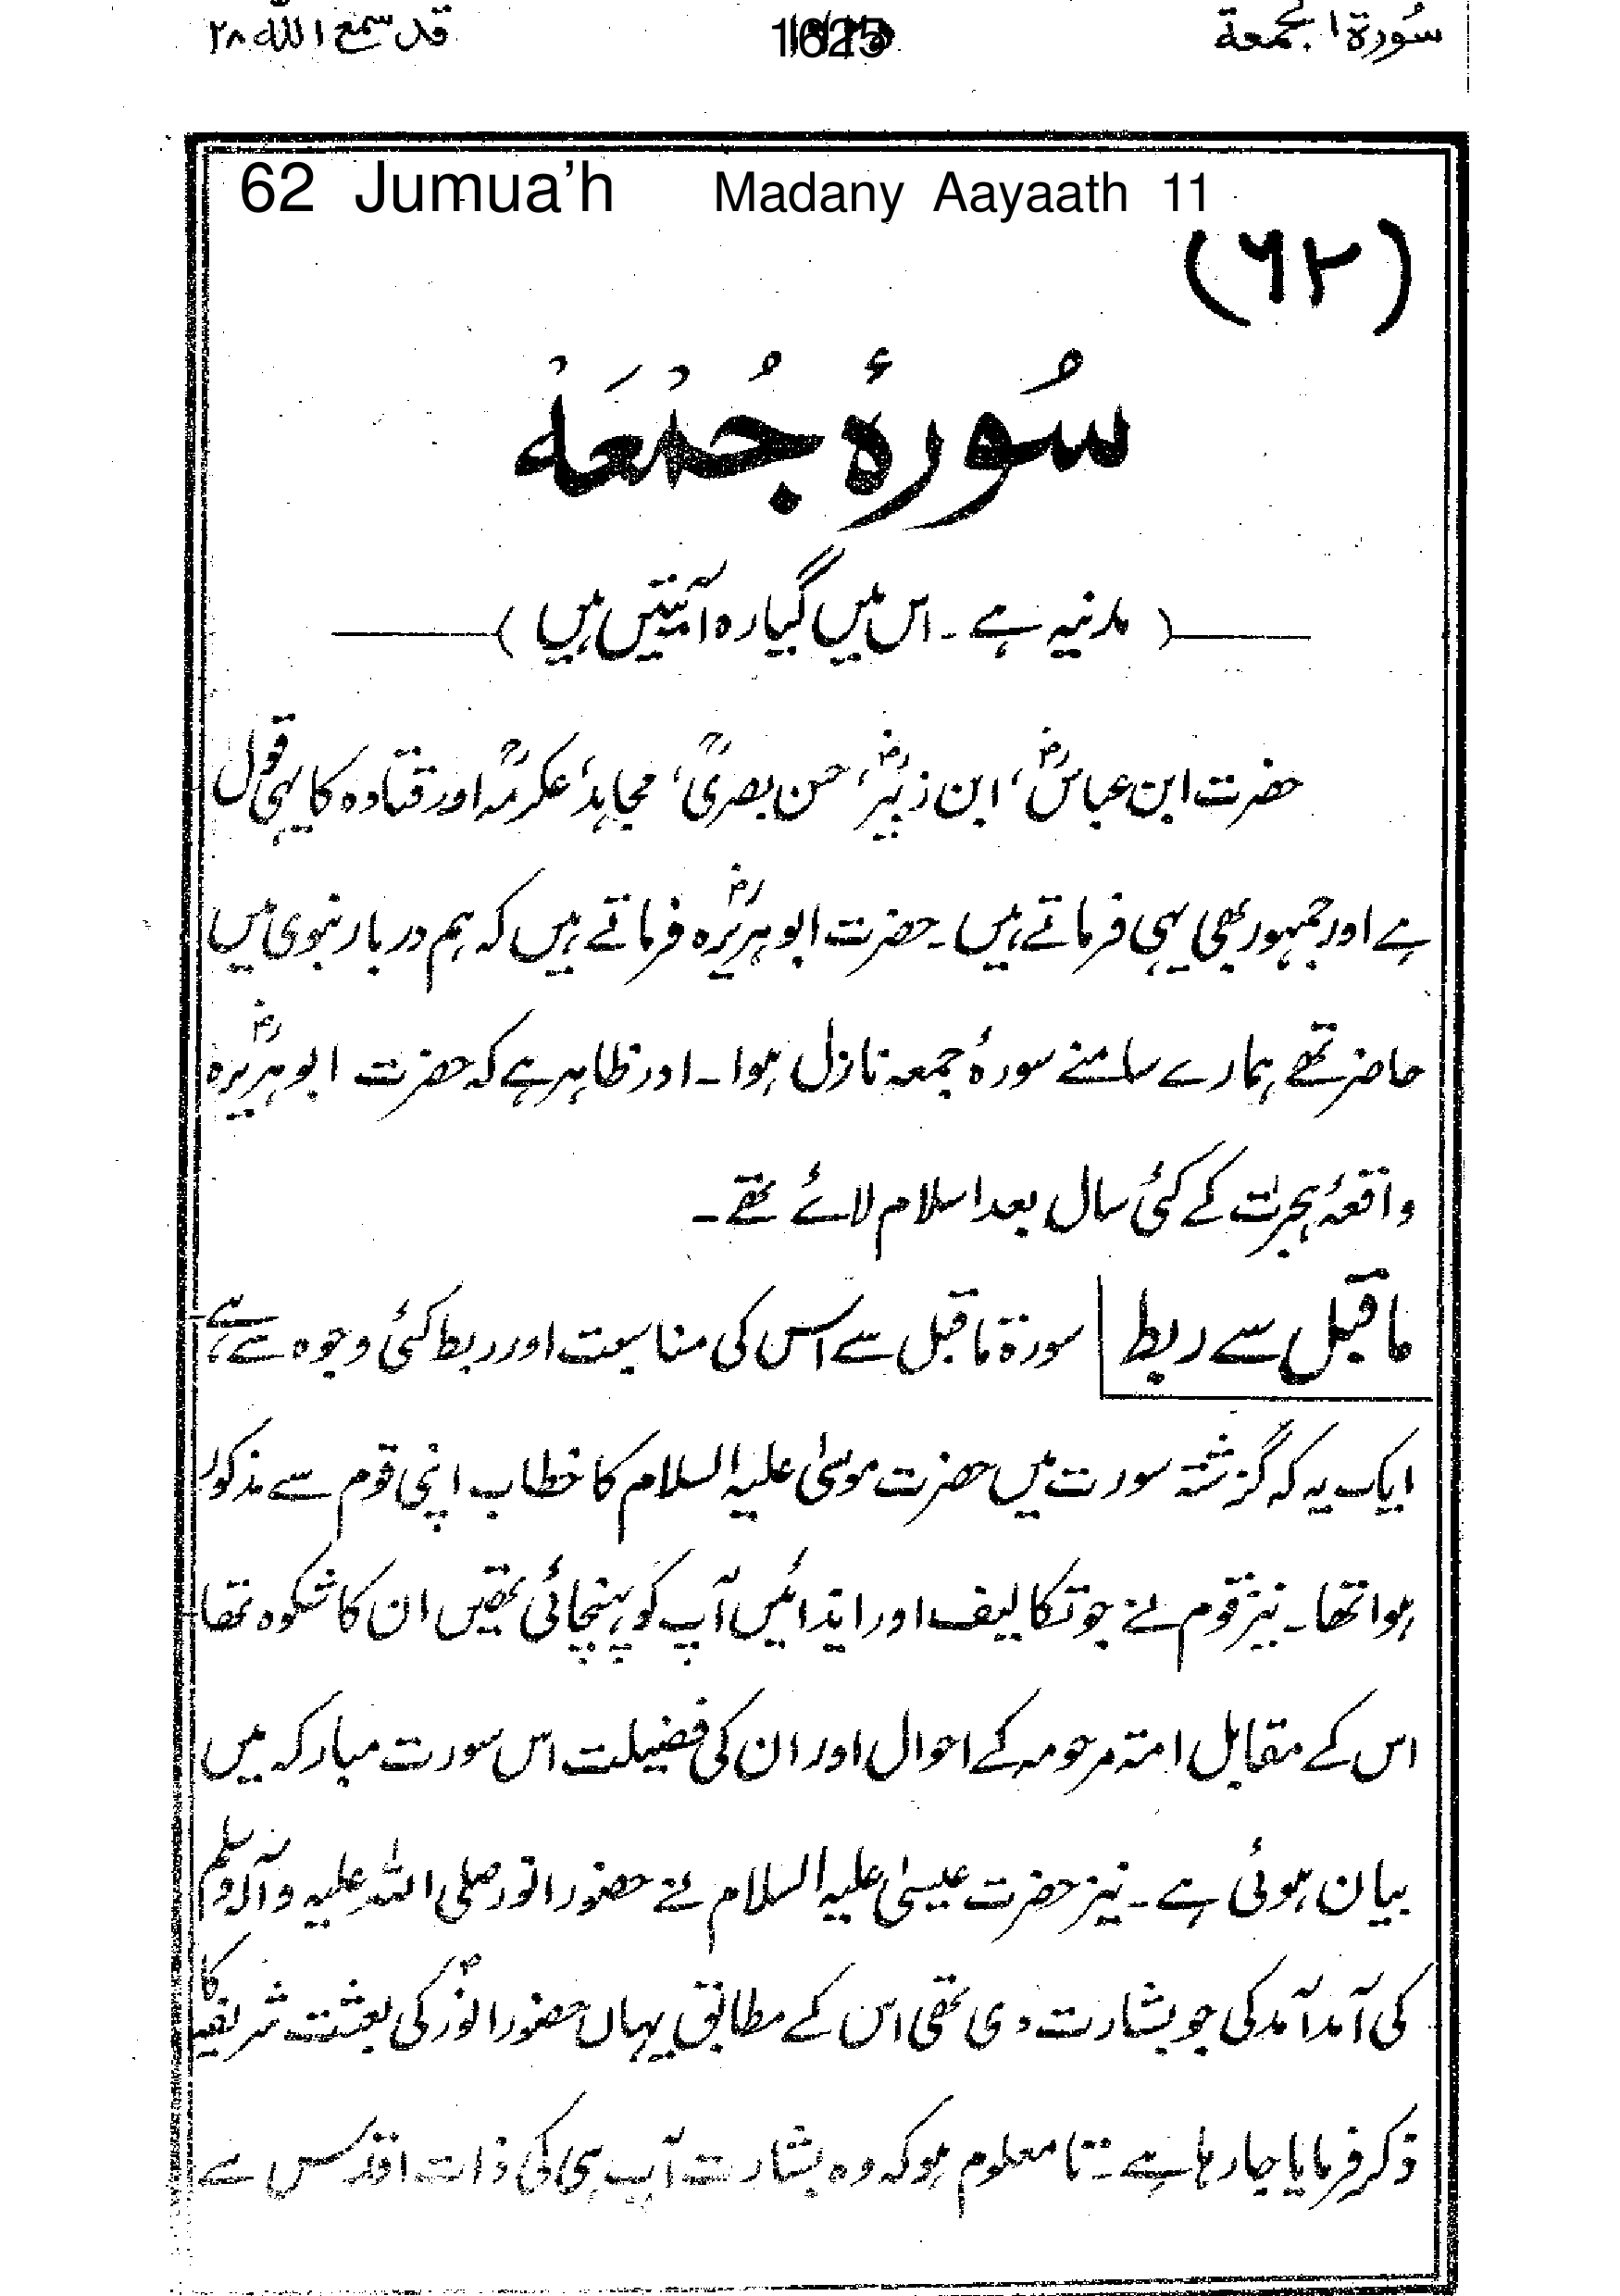 سُورة الجمعة 1625 قد سمع الله ۲۸
62 Jumua'h Madany Aayaath 11
(۶۲)
سُورۂ جُمْعَہْ
( مدنیہ ہے ۔ اس میں گیارہ آیتیں ہیں )
حضرت ابن عباسؓ، ابن زبیرؓ، حسن بصریؒ، مجاہد، عکرمہؒ اور قتادہ کا یہی قول
ہے اور جمہور بھی یہی فرماتے ہیں۔ حضرت ابوہریرہؓ فرماتے ہیں کہ ہم دربار نبوی میں
حاضر تھے ہمارے سامنے سورۂ جمعہ نازل ہوا۔ اور ظاہر ہے کہ حضرت ابوہریرہؓ
واقعۂ ہجرت کے کئی سال بعد اسلام لائے تھے ۔
ماقبل سے ربط سورۃ ماقبل سے اس کی مناسبت اور ربط کئی وجوہ سے ہے،
ایک یہ کہ گزشتہ سورت میں حضرت موسیٰ علیہ السلام کا خطاب اپنی قوم سے مذکور
ہوا تھا۔ نیز قوم نے جو تکالیف اور ایذائیں آپ کو پہنچائی تھیں ان کا شکوہ تھا
اس کے مقابل امۃ مرحومہ کے احوال اور ان کی فضیلت اس سورت مبارکہ میں
بیان ہوئی ہے ۔ نیز حضرت عیسیٰ علیہ السلام نے حضور انور صلی اللہ علیہ وآلہ وسلم
کی آمد آمد کی جو بشارت دی تھی اس کے مطابق یہاں حضور انورؐ کی بعثت شریفہ کا
ذکر فرمایا جا رہا ہے ۔ تا معلوم ہو کہ وہ بشارت آپ ہی کی ذات اقدس سے